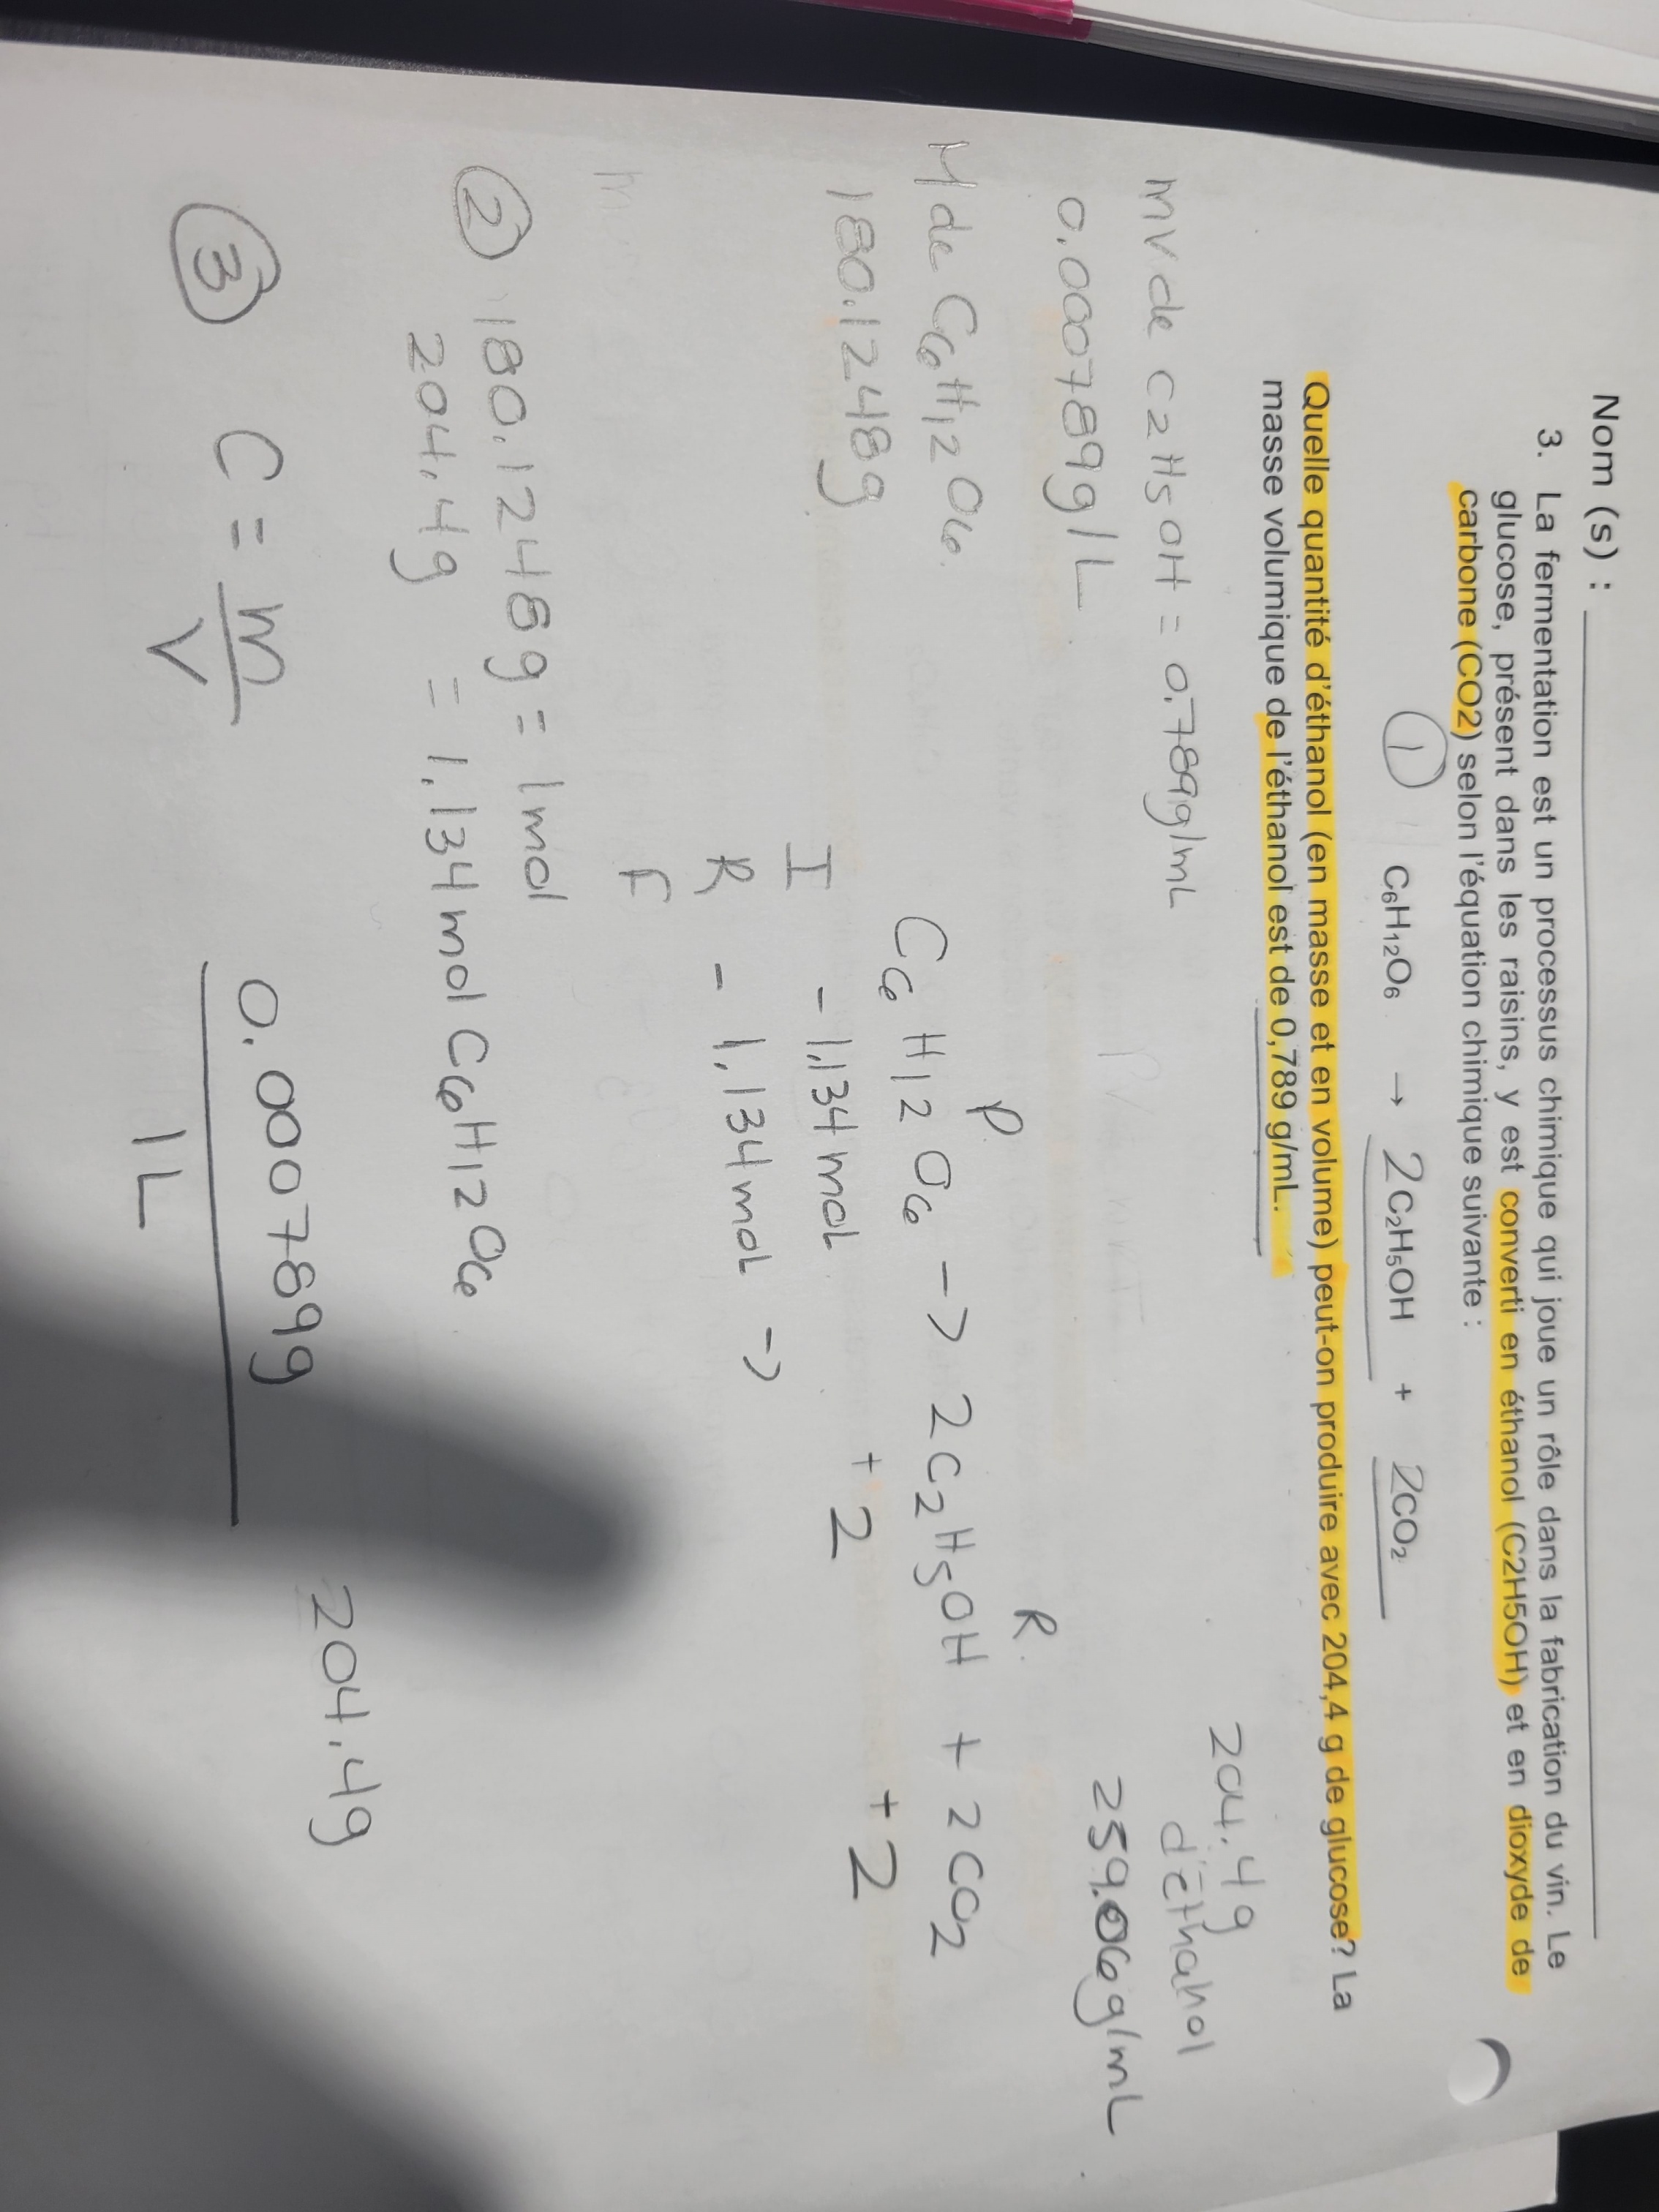 Nom (s) :
3. La fermentation est un processus chimique qui joue un rôle dans la fabrication du vin. Le
glucose, présent dans les raisins, y est converti en éthanol (C2H5OH) et en dioxyde de
carbone (CO2) selon l'équation chimique suivante :
① C₆H₁₂O₆ → 2C₂H₅OH + 2CO₂
Quelle quantité d'éthanol (en masse et en volume) peut-on produire avec 204,4 g de glucose? La
masse volumique de l'éthanol est de 0,789 g/mL.
204.4g
d'éthanol
mv de C2H5OH = 0.789g/mL
259.06g/mL
0.000789g/L
P R
M de C6H12O6
C6H12O6 -> 2C2H5OH + 2CO2
180.1248g
I -1,134mol +2 +2
R -1,134mol ->
F
② 180.1248g = 1mol
204.4g = 1,134mol C6H12O6
204.4g
③ C = m/V 0.000789g
1L